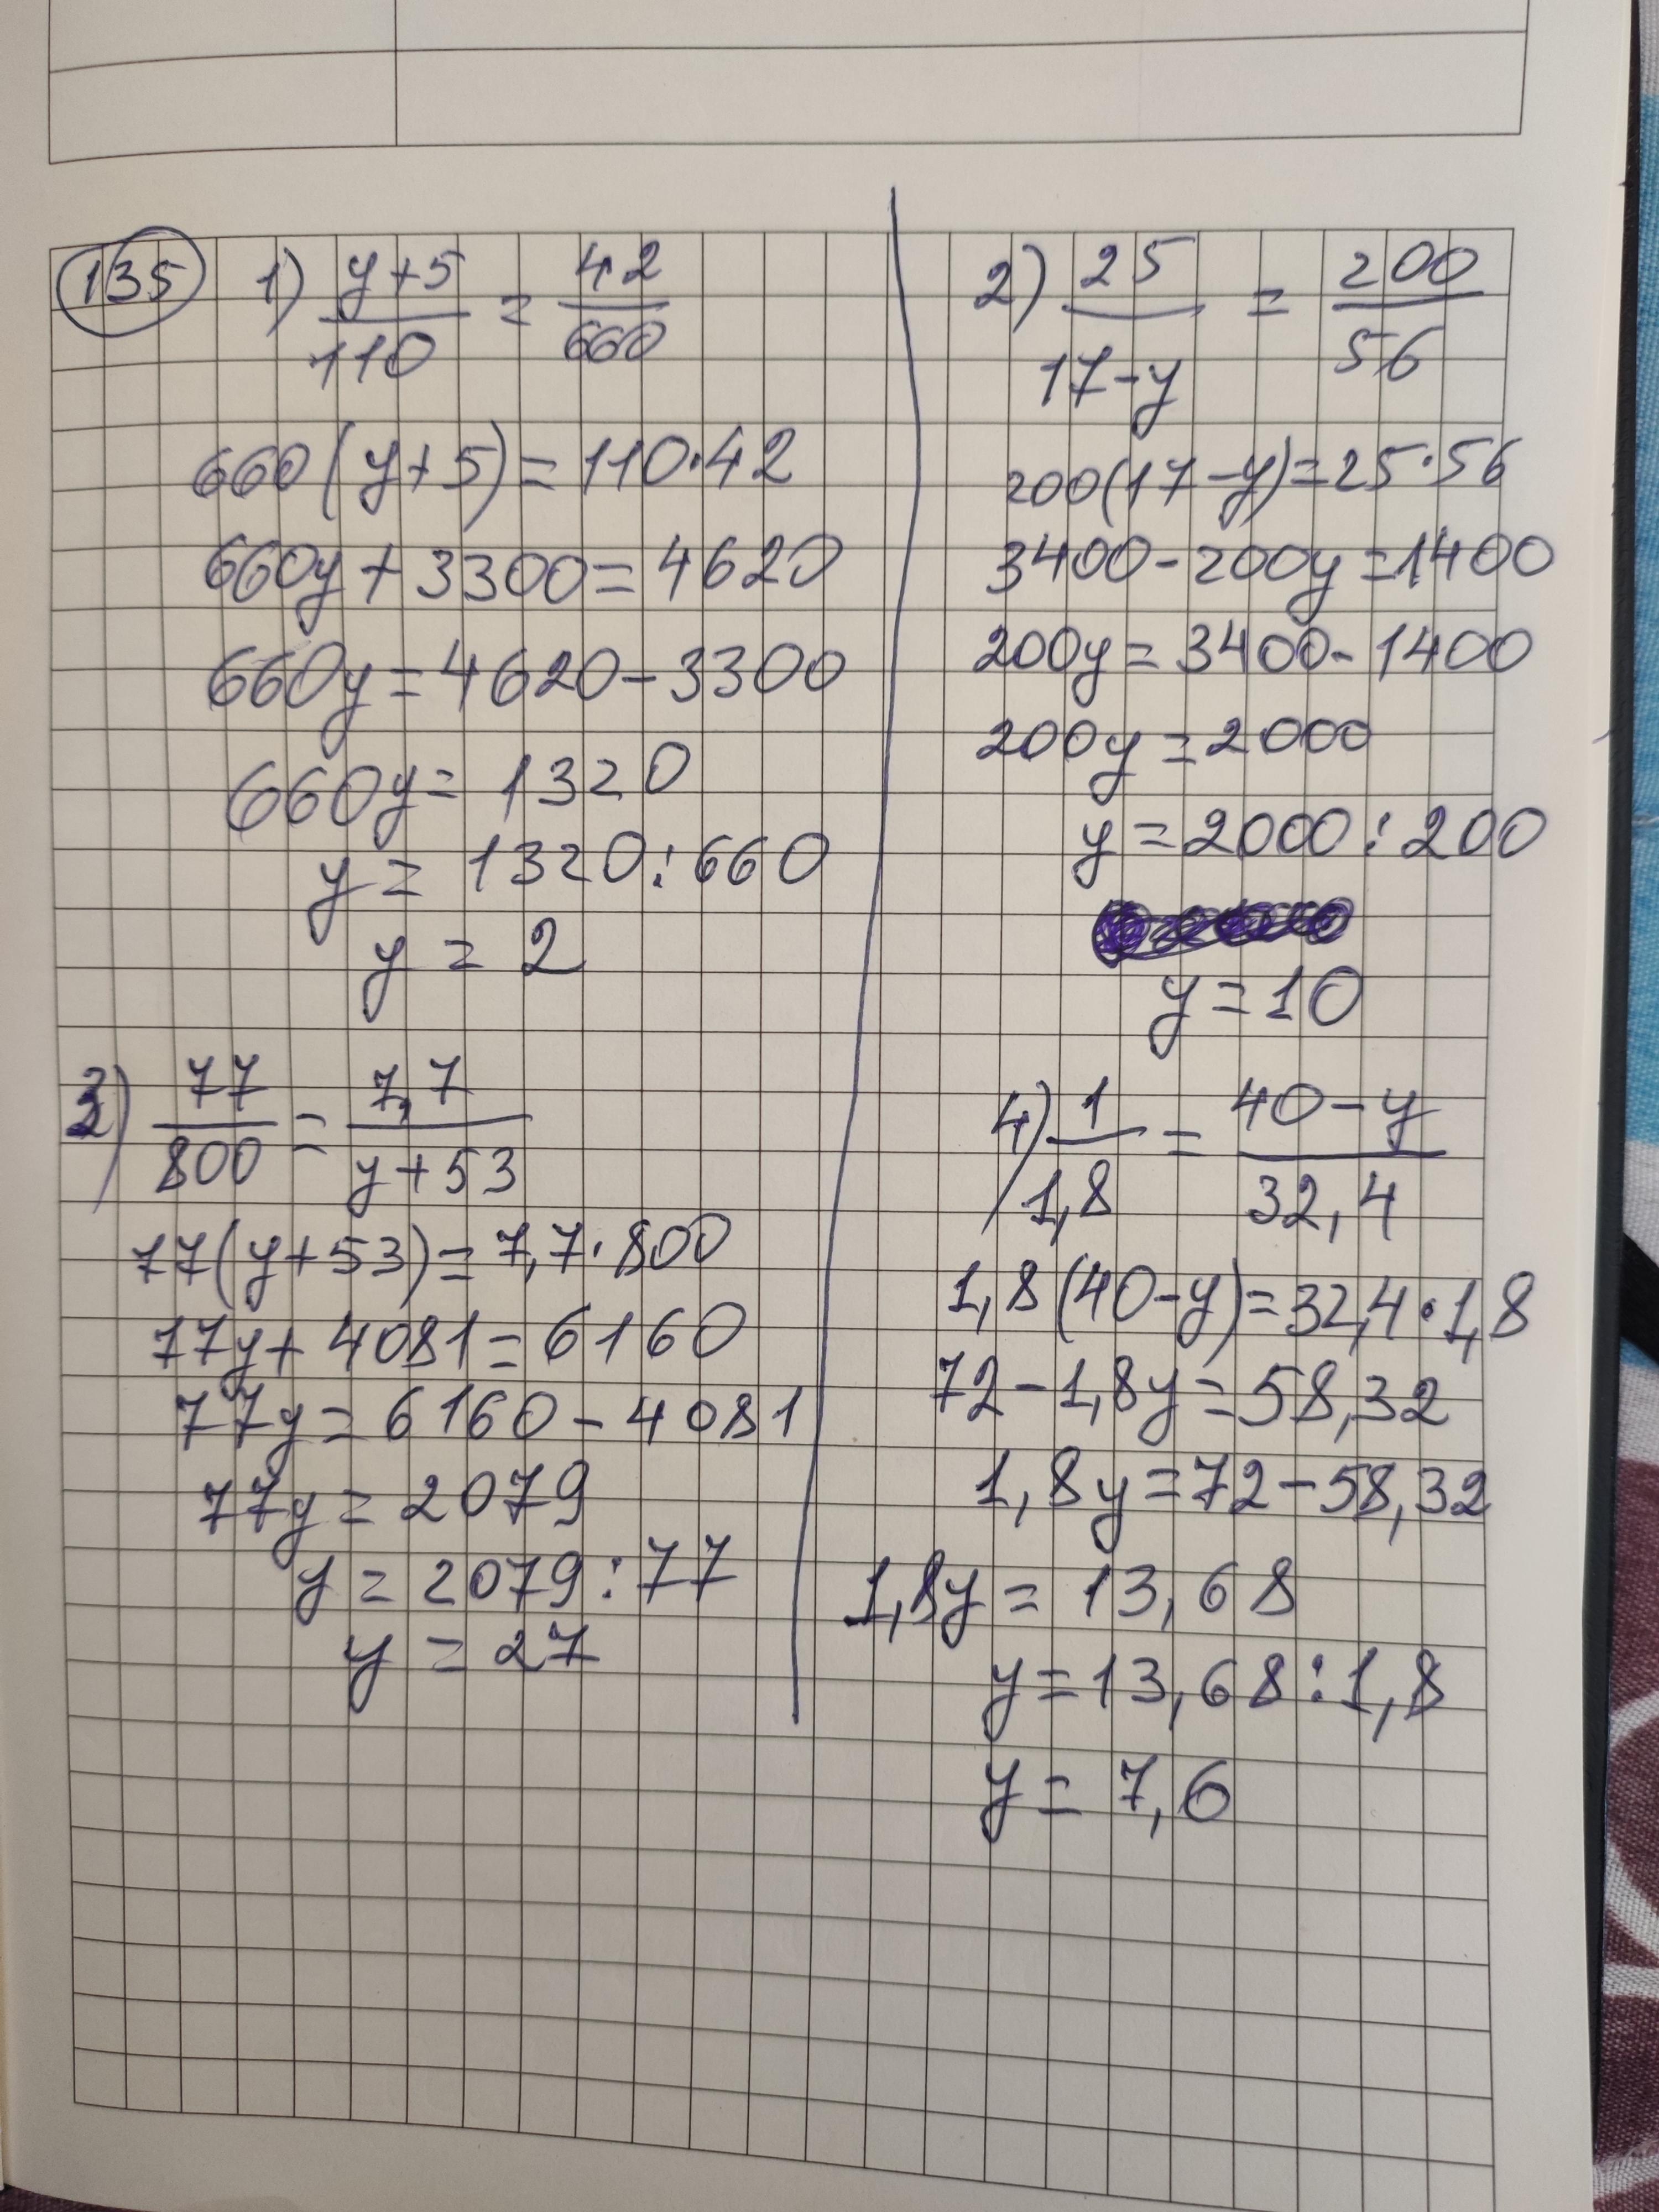 135
1) y+5/110 = 42/660
660(y+5)=110·42
660y+3300=4620
660y=4620-3300
660y=1320
y=1320:660
y=2
2) 25/17-y = 200/56
200(17-y)=25·56
3400-200y=1400
200y=3400-1400
200y=2000
y=2000:200
y=10
3) 77/800 = 7,7/y+53
77(y+53)=7,7·800
77y+4081=6160
77y=6160-4081
77y=2079
y=2079:77
y=27
4) 1/1,8 = 40-y/32,4
1,8(40-y)=32,4·1,8
72-1,8y=58,32
1,8y=72-58,32
1,8y=13,68
y=13,68:1,8
y=7,6